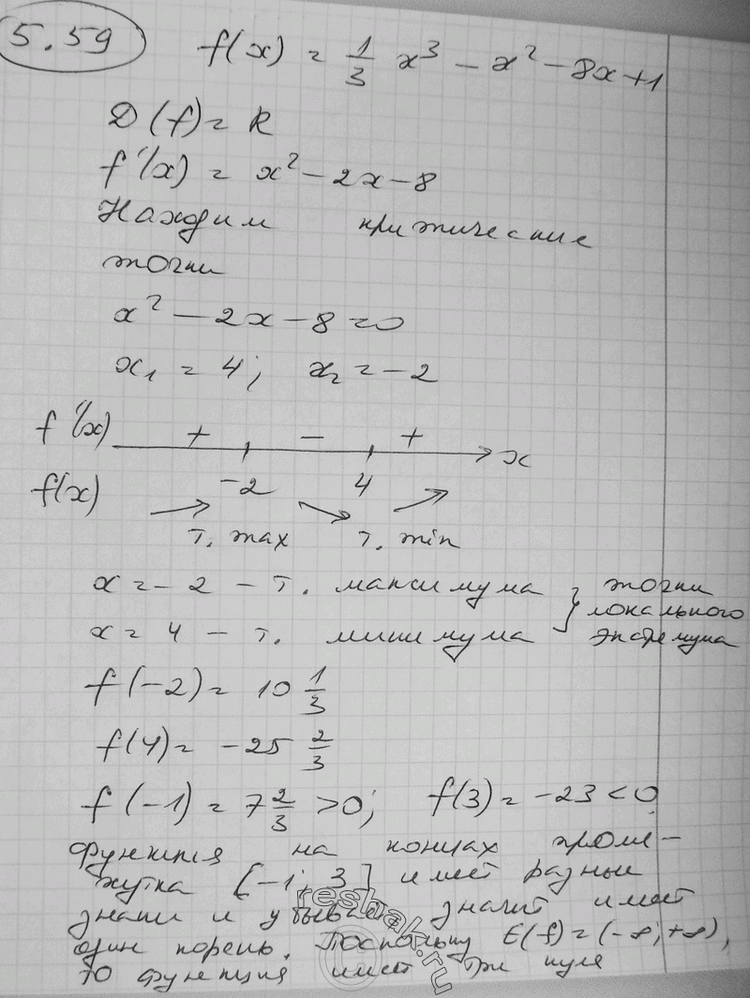 5.59 f(x) = 1/3 x³ - x² - 8x + 1
D(f) = R
f'(x) = x² - 2x - 8
Находим критические
точки
x² - 2x - 8 = 0
x₁ = 4; x₂ = -2
f'(x) + - + x
f(x) -2 4
т. max т. min
x = -2 - т. максимума } точки
локального
x = 4 - т. минимума экстремума
f(-2) = 10 1/3
f(4) = -25 2/3
f(-1) = 7 2/3 > 0; f(3) = -23 < 0
функция на концах проме-
жутка [-1; 3] имеет разные
знаки и убывает, значит имеет
один корень. Поскольку E(f) = (-∞; +∞),
то функция имеет три нуля
reshak.ru